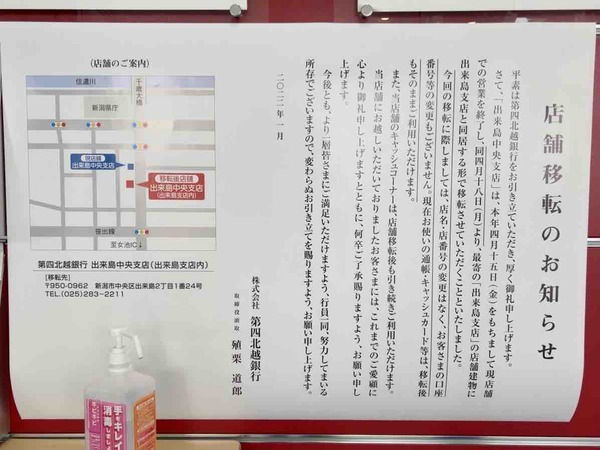 店舗移転のお知らせ
平素は第四北越銀行をお引き立ていただき、厚く御礼申し上げます。
さて、「出来島中央支店」は、本年四月十五日（金）をもちまして現店舗
での営業を終了し、同四月十八日（月）より、最寄の「出来島支店」の店舗建物に
出来島支店と同居する形で移転させていただくことといたしました。
今回の移転に際しましては、店名・店番号の変更はなく、お客さまの口座
番号等の変更もございません。現在お使いの通帳・キャッシュカード等は、移転後
もそのままご利用いただけます。
また、当店舗のキャッシュコーナーは、店舗移転後も引き続きご利用いただけます。
当店舗にお越しいただいておりましたお客さまには、これまでのご愛顧に
心より御礼申し上げますとともに、何卒ご了承賜りますよう、お願い申し
上げます。
今後とも、より一層皆さまにご満足いただけますよう、行員一同、努力してまいる
所存でございますので、変わらぬお引き立てを賜りますよう、お願い申し上げます。
二〇二二年一月
株式会社 第四北越銀行
取締役頭取 殖栗 道郎
（店舗のご案内）
信濃川
千歳大橋
新潟県庁
現店舗
出来島中央支店
移転後店舗
出来島中央支店
（出来島支店内）
笹出線
至女池IC↓
第四北越銀行 出来島中央支店（出来島支店内）
［移転先］
〒950-0962 新潟市中央区出来島2丁目1番24号
TEL.（025）283-2211
手をキレイ
消毒しましょ